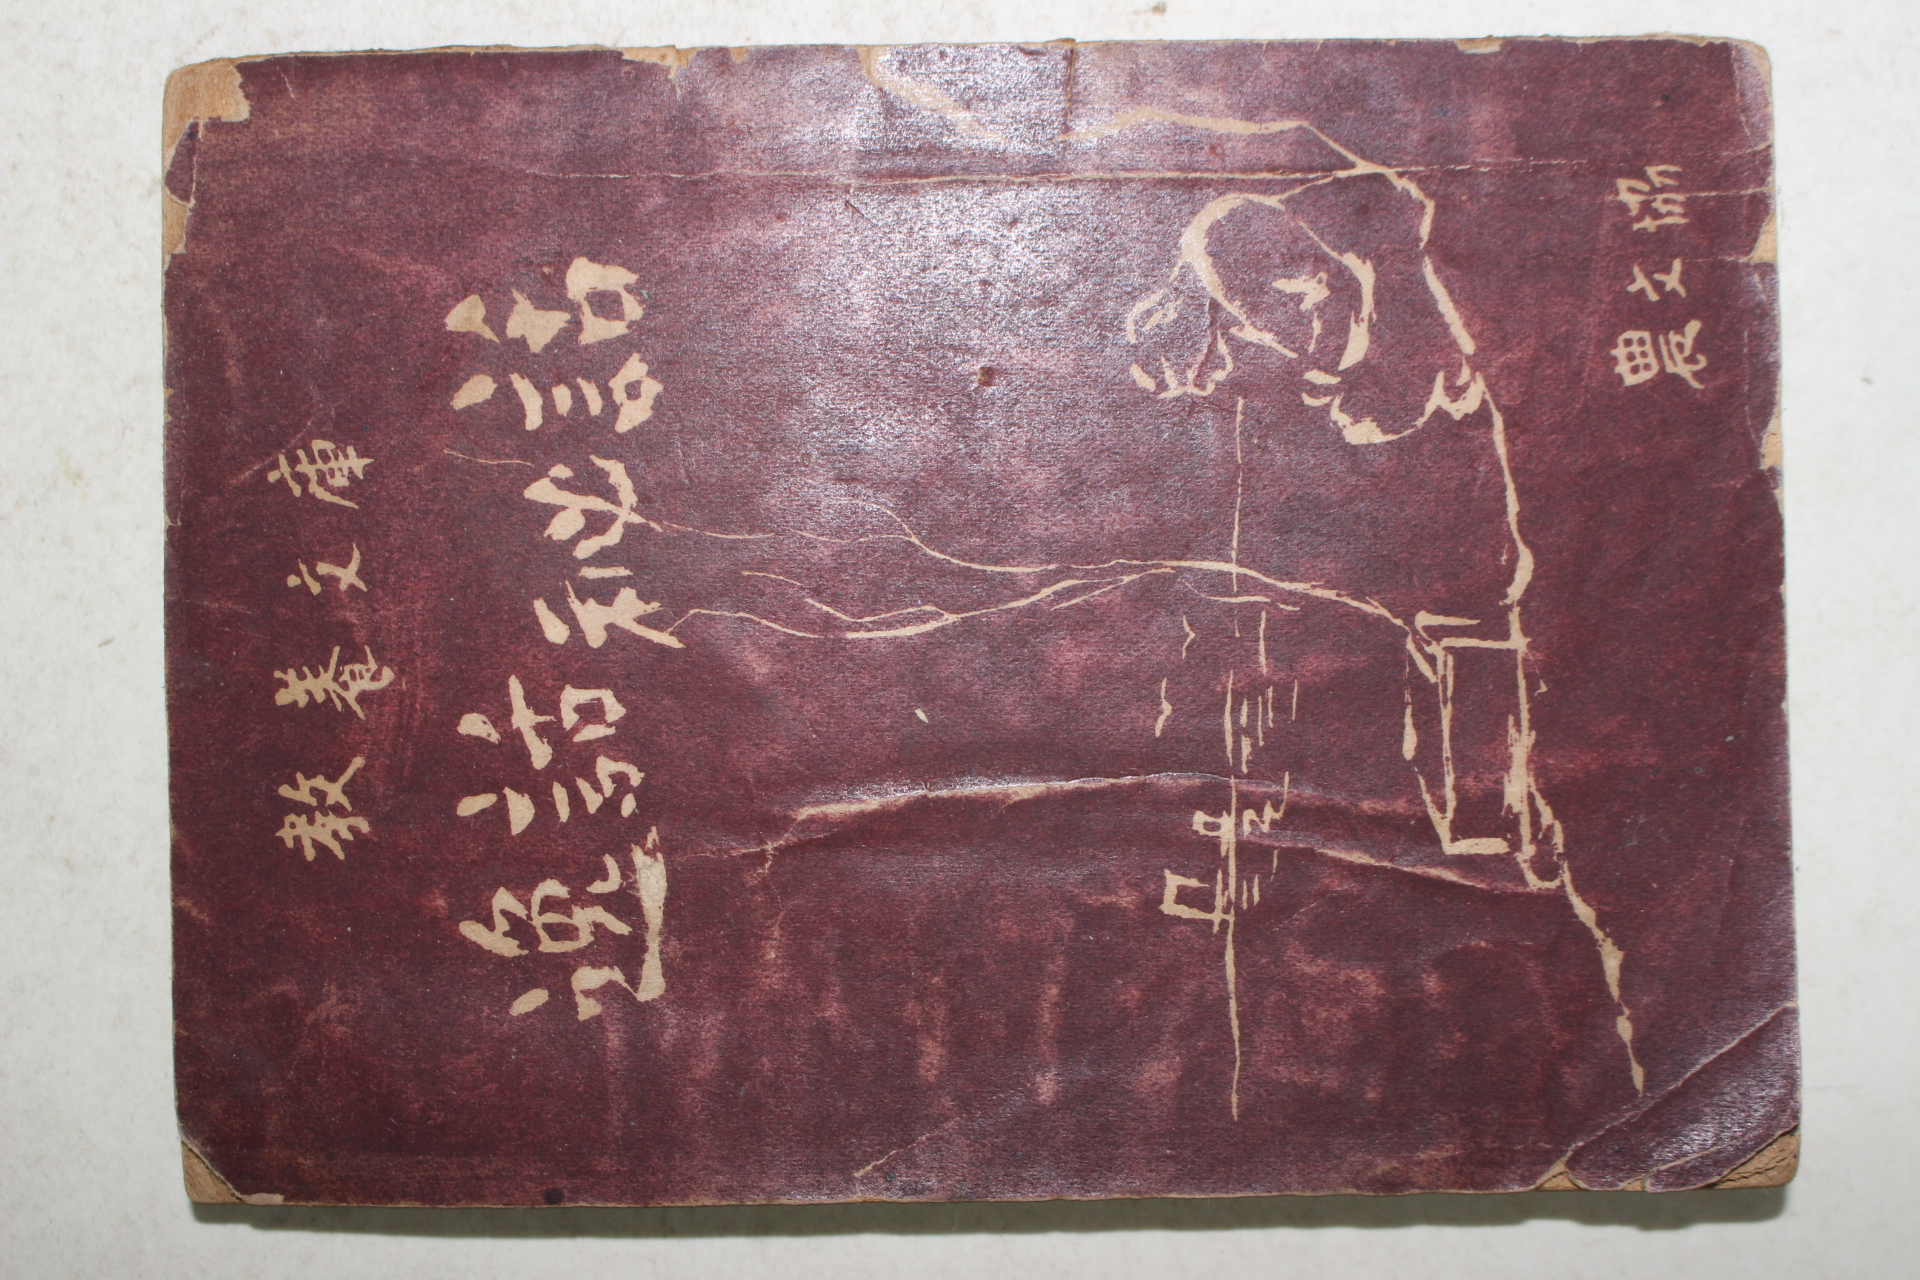 教養文庫
逸話秘話
農文協